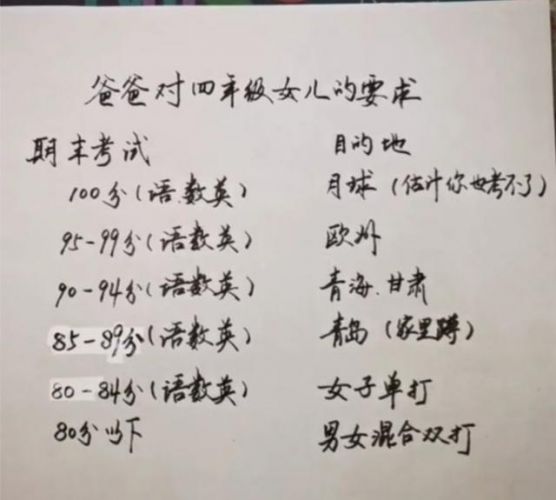 爸爸对四年级女儿的要求
期末考试 目的地
100分(语.数英) 月球(估计你也考不了)
95-99分(语数英) 欧洲
90-94分(语数英) 青海.甘肃
85-89分(语数英) 青岛(家里蹲)
80-84分(语数英) 女子单打
80分以下 男女混合双打